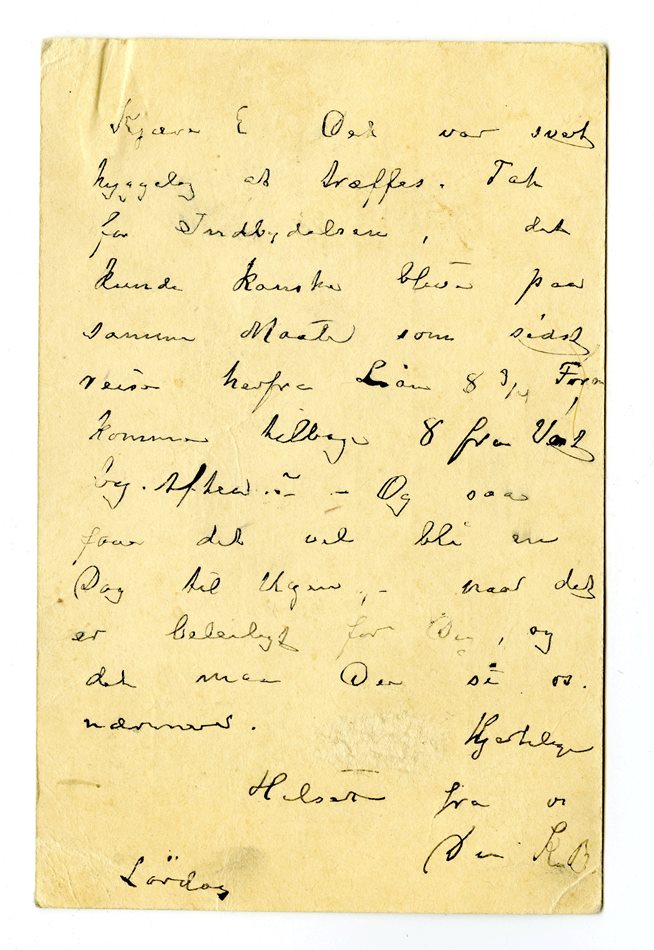 Kjære E Det var svært
hyggelig at træffes. Tak
for Indbydelsen, det
kunde kanske blive paa
samme Maate som sidst
reise herfra Lian 8 3/4 Form
komme tilbage 8 fra
by. Aften. – Og saa
faar det vel bli en
Dag til Ugen, – naar det
er beleiligt for Dig, og
det maa Du si os
nærmere. Hjertelige
Hilsen fra os
Din K.B.
Lördag